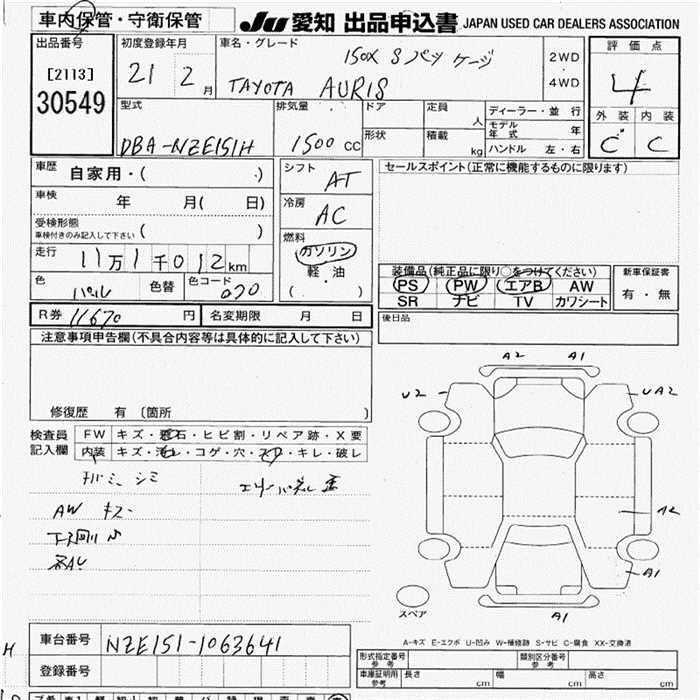 車内保管・守衛保管 JU 愛知 出品申込書 JAPAN USED CAR DEALERS ASSOCIATION
出品番号
[2113]
30549
初度登録年月
21 2 月
車名・グレード
150X Sパッケージ
TAYOTA AURIS
2WD
・
4WD
評価点
4
外装 内装
C C
型式
DBA-NZE151H
排気量
1500 CC
ドア
形状
定員
人
積載
kg
ディーラー・並行
モデル年式 年
ハンドル 左・右
車歴 自家用・( )
車検 年 月( 日)
受検形態
車検付きのみ記入して下さい ( )
走行 11万1千012km
色 パール 色替 色コード 070
シフト
AT
冷房
AC
燃料
ガソリン
軽・油
( )
セールスポイント(正常に機能するものに限ります)
装備品(純正品に限り○をつけてください)
PS PW エアB AW
SR ナビ TV カワシート
新車保証書
有・無
後日品
R券 11670 円 名変期限 月 日
注意事項申告欄(不具合内容等は具体的に記入して下さい)
修復歴 有 〔箇所 〕
検査員
記入欄
FW キズ・飛石・ヒビ割・リペア跡・X要
内装 キズ・汚れ・コゲ・穴・スレ・キレ・破レ
シミ
AW キズ
A2 A1
U2 UA2
A2
A1
A1
スペア
A-キズ E-エクボ U-凹み W-補修跡 S-サビ C-腐食 XX-交換済
車台番号 NZE151-1063641
登録番号
形式指定番号
参考
類別区分番号
参考
車庫証明用
参考
長さ cm 幅 cm 高さ cm
H